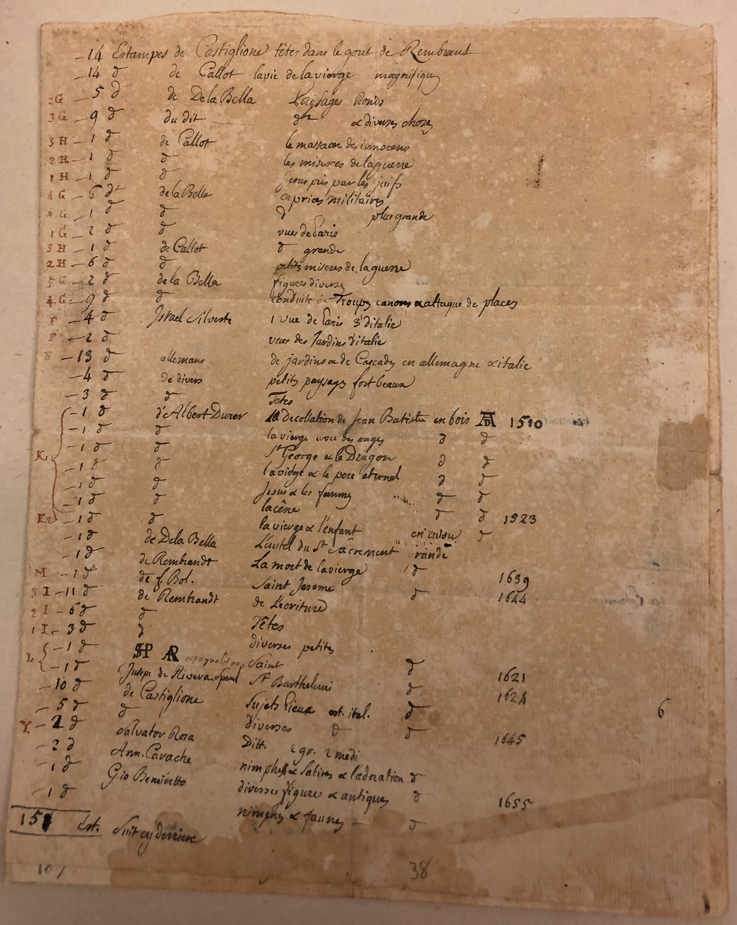 – 14 Estampes de Castiglione têtes dans le gout de Rembrant
– 14 d de Callot la vie de la vierge magnifiqz
2 G – 5 d de De la Bella Paÿsages Ronds
3 G – 9 d du dit d° & diverses choses
3 H – 1 d de Callot le massacre des innocens
2 H – 1 d d les miseres de la guerre
1 H – 1 d d jesus pris par les juifs
4 G – 6 d de la Bella caprices militaires
G – 1 d d d plus grande
1 G – 2 d d vues de Paris
3 H – 1 d de Callot d grande
2 H – 6 d d petits miseres de la guerre
5 G – 2 d de la Bella figures diverses
4 G – 9 d d conduite de Troupes canons & attaque de places
– 4 d Israel Silveste 1 vue de Paris 3 d'italie
– 2 d vues des Jardins d'italie
– 13 d allemans de jardins & de Cascades en allemagne & italie
– 4 d de divers petits paysages fort beaux
– 3 d d Têtes
– 1 d d'Albert Durer la Decollation de Jean Batiste en bois AD 1510
– 1 d d la vierge avec des anges d d
– 1 d d St George & le Dragon d d
K. – 1 d d la vierge & le pere eternel d d
– 1 d d Jesus & les d d
– 1 d d la cêne d d 1523
K – 1 d d la vierge & l'enfant en cuivre d
– 1 d de De la Bella L'autel du St Sacrement
M – 1 d de Rembrandt La mort de la vierge d 1639
3 I – 11 d de f. Bol. Saint Jerome d 1644
2 I – 6 d de Rembrandt de L'écriture
1 I – 3 d d Têtes
– 1 d d diverses petits
L – 1 d SP AR Saint d 1621
– 10 d Jusepe de Rivera St Barthelemi d 1624
– 5 d de Castiglione Sujets Pieux est. ital. d
Y – 2 d d diverses d d 1645
– 2 d Salvator Rosa Ditt. 2 gr. 2 medi
– 1 d Ann. Carache nimphes & Satires & l'adoration d
– 1 d Gio Benedetto diverses figures & antiques d 1655
nimphes & faunes – d
6
Est. Suit cy derriere
38